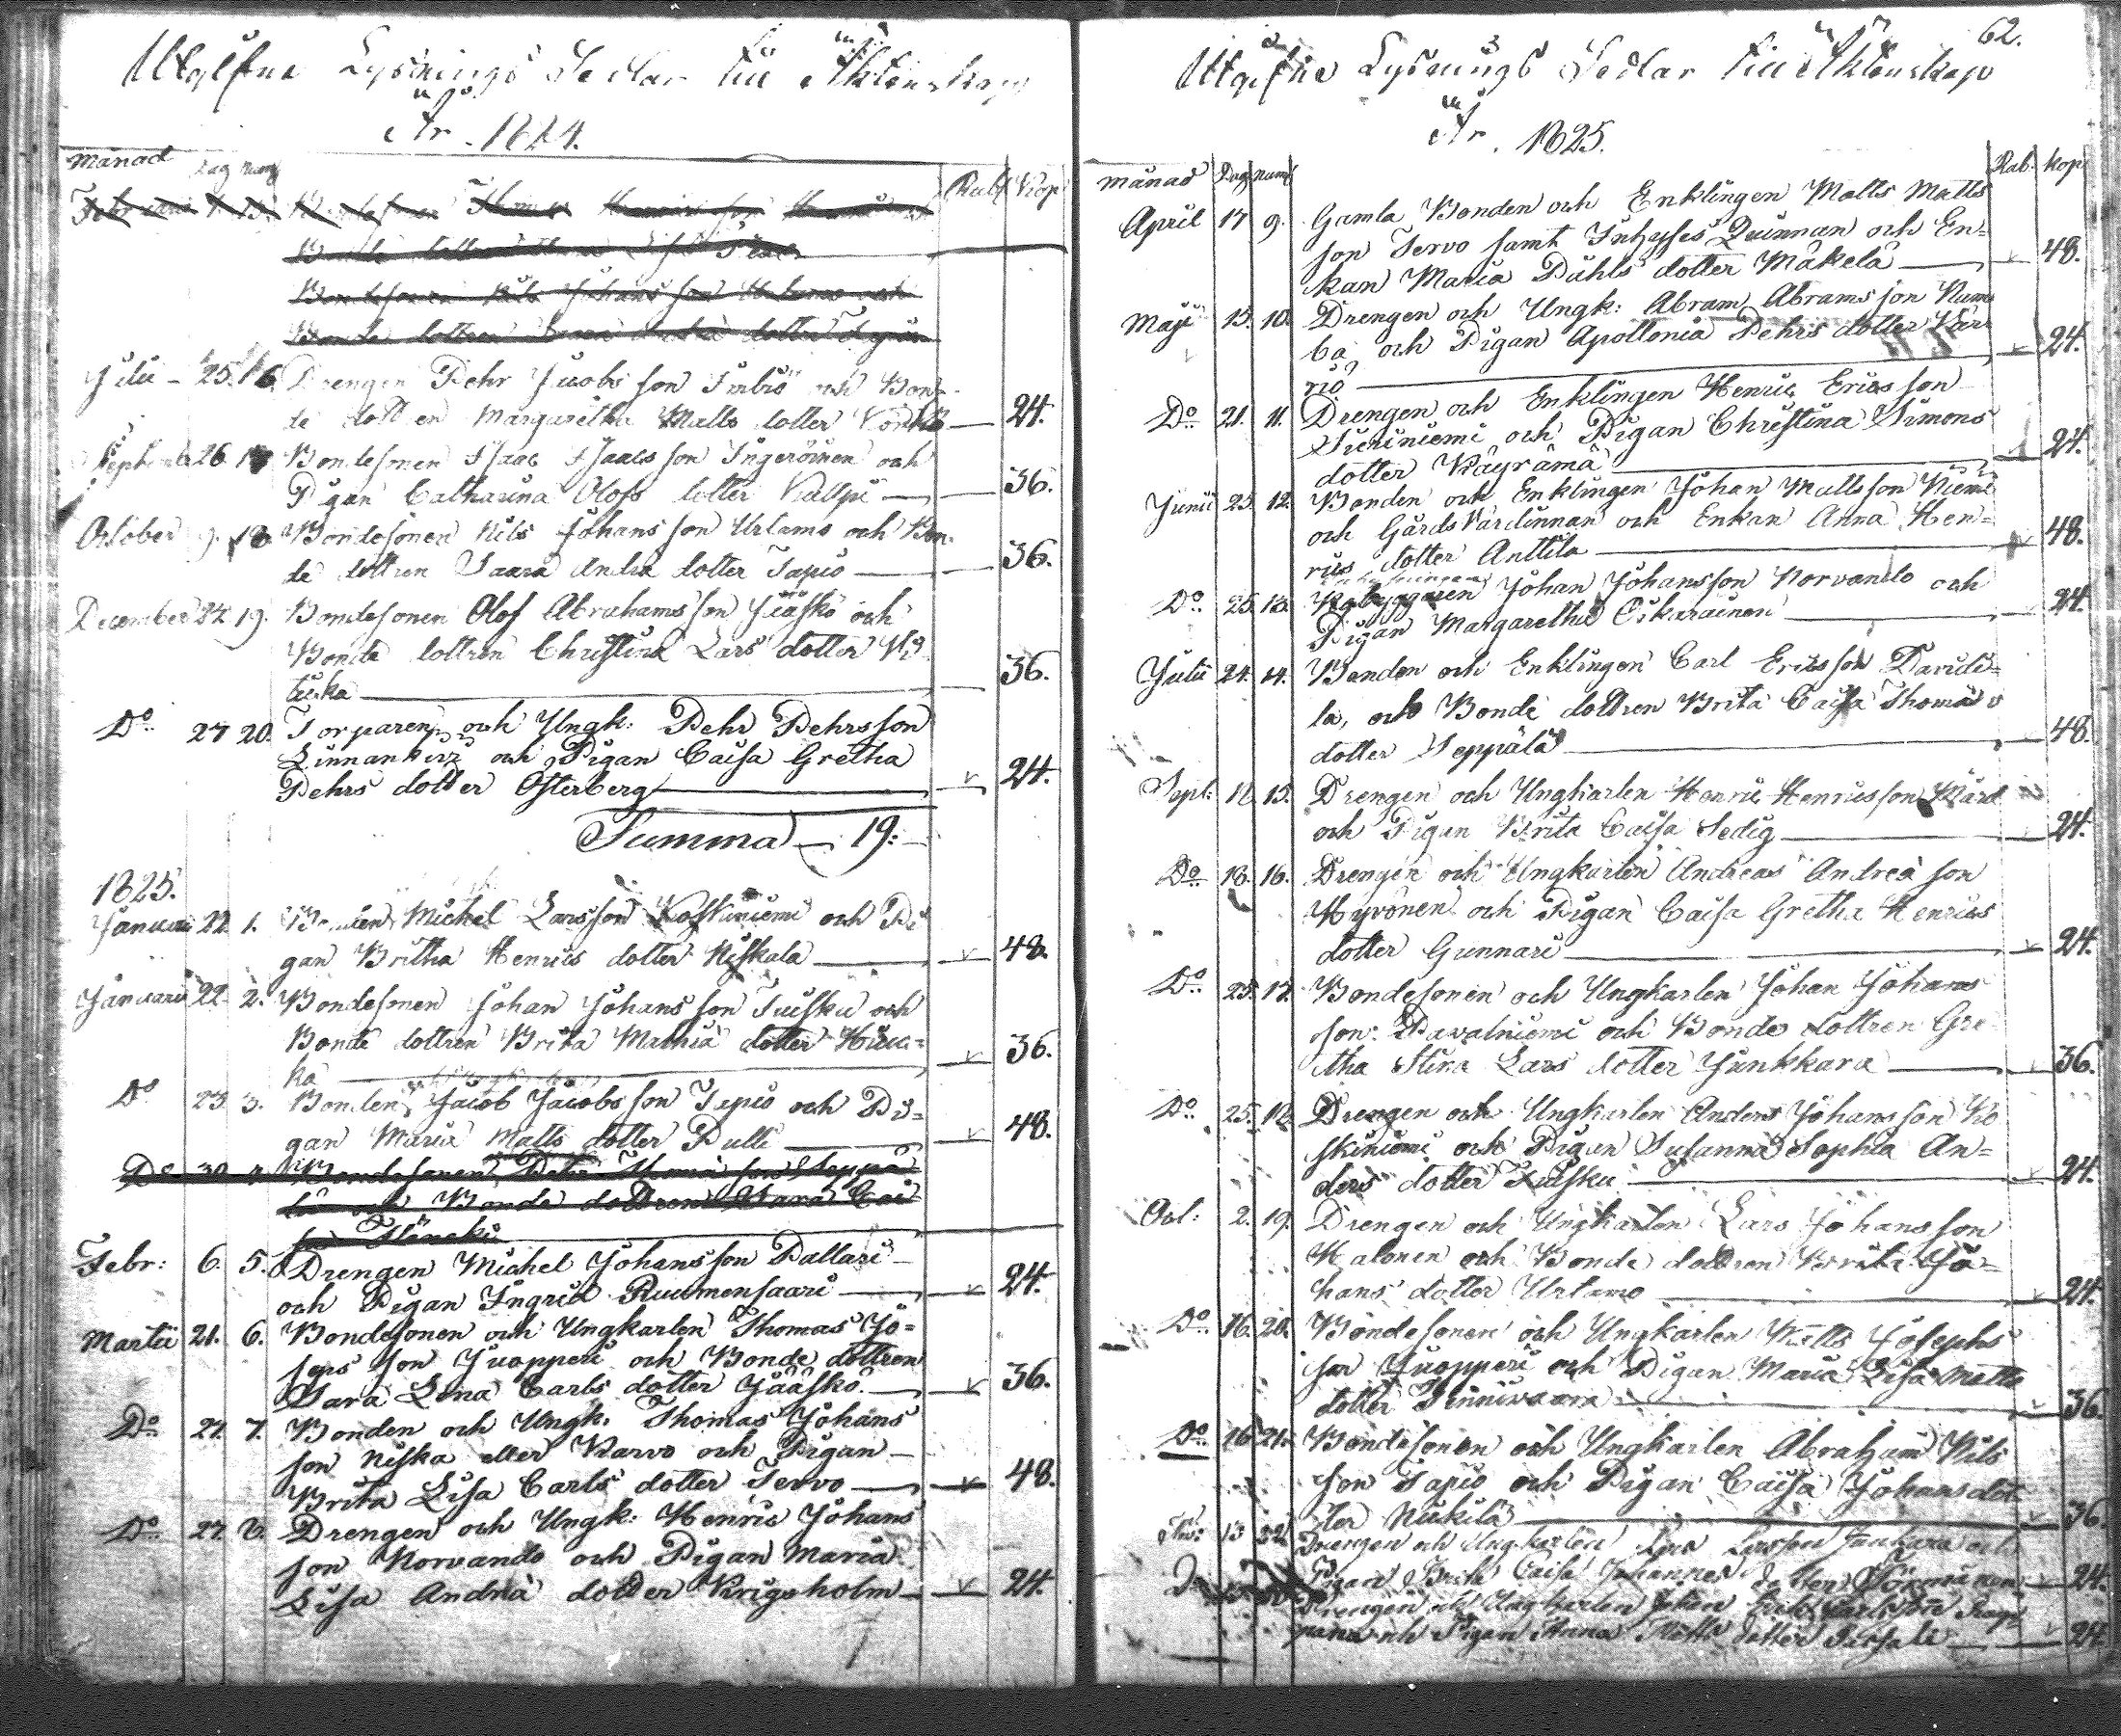 Utgifne Lysnings Sedlar till Äktenskap
År. 1824.
Månad Dag Num Rub. Kop.
Bondesonen Nils Johans son Urtamo och
Bonde dottren dotter Tapio
Julii 25. 16. Drengen Pehr Jacobs son och Bon-
de dottren Margaretha Matts dotter 24.
Septemb. 26. 17. Bondesonen Isaac Isaacs son Ingeröinen och
Pigan Catharina Olofs dotter Kallpi 36.
October 9. 18. Bondesonen Nils Johans son Urtamo och Bon-
de dottren Saara Andrä dotter Tapio 36.
December 24. 19. Bondesonen Olof Abrahams son Jääskö och
Bonde dottren Christina Lars dotter
36.
Do 27. 20. Torparen och Ungk: Pehr Pehrs son
Linnankivi och Pigan Caisa Gretha
Pehrs dotter Österberg 24.
Summa 19:
1825.
Januarii 22. 1. Bonden Michel Larsson Koskiniemi och Pi
gan Britha Henrics dotter Niskala 48.
Januarii 22. 2. Bondesonen Johan Johans son Tuisku och
Bonde dottren Brita Mathiä dotter Hiuc-
ka 36.
Do 23. 3. Bonden Jacob Jacobs son Tepio och Pi-
gan Maria Matts dotter Pulli 48.
Do 30. 4. Bondesonen Thomä son Seppä
lä och Bonde dottren Sara Cai
sa
Febr: 6. 5. Drengen Michel Johansson Pallari
och Pigan Ingrid Ruumensaari 24.
Martii 21. 6. Bondesonen och Ungkarlen Thomas Jo-
seps son Juopperi och Bonde dottren
Sara Lena Carls dotter Jääskö. 36.
Do 27. 7. Bonden och Ungk. Thomas Johans
son Niska eller Karvo och Pigan
Brita Lisa Carls dotter Tervo 48.
Do 27. 8. Drengen och Ungk: Henric Johans
son Norvando och Pigan Maria
Lisa Andriä dotter Krigsholm 24.
62.
Utgifne Lysnings Sedlar till Äktenskap
År. 1825.
Månad Dag Num Rub. Kop.
April 17 9. Gamla Bonden och Enklingen Matts Matts
son Tervo samt Inhyses Quinnan och En-
kan Maria Påhls dotter Mäkelä 48.
Maji 15. 10. Drengen och Ungk: Abram Abrams son Kum
ba och Pigan Apollonia Pehrs dotter Kär
riö 24.
Do 21. 11. Drengen och Enklingen Henric Erics son
Sieriniemi och Pigan Christina Simons
dotter Käyrämä 24.
Junii 23. 12. Bonden och Enklingen Johan Matts son Niemi
och Gårds Värdinnan och Enkan Anna Hen-
rics dotter Anttila 48.
Do 25. 13. Nybyggaren Johan Johansson Norvando och
Pigan Margaretha Oikarainen 24.
Julii 24. 14. Bonden och Enklingen Carl Ericsson Taridi-
la, och Bonde dottren Brita Caisa Thomä
dotter Seppälä 48.
Sept: 11. 15. Drengen och Ungkarlen Henric Henricsson Mård
och Pigan Brita Caisa Sedig 24.
Do 18. 16. Drengen och Ungkarlen Andreas Andreä son
Hyvönen och Pigan Caisa Gretha Henrics
dotter Gunnari 24.
Do 25. 17. Bondesonen och Ungkarlen Johan Johans
son: Pawalniemi och Bonde dottren Gre
tha Stina Lars dotter Junkkara 36.
Do 25. 18. Drengen och Ungkarlen Anders Johansson Ko
skiniemi och Pigan Susanna Sophia An-
ders dotter Tuisku 24.
Oct: 2. 19. Drengen och Ungkarlen Lars Johansson
Halonen och Bonde dottren Brita Jo-
hans dotter Urtamo 24.
Do 16. 20. Bondesonen och Ungkarlen Matts Josephs
son Juopperi och Pigan Maria Lisa Matts
dotter Kinniwaara 36.
Do 16 21. Bondesonen och Ungkarlen Abraham Nils
son Tapio och Pigan Caisa Johans dot
ter Nickilä 36.
13 22. Drengen och Ungkarlen Lars Larsson Junkara och
Pigan Brita Caisa Johannes dotter 24.
Drengen och Ungkarlen Johan
och Pigan Anna Matts dotter 24.